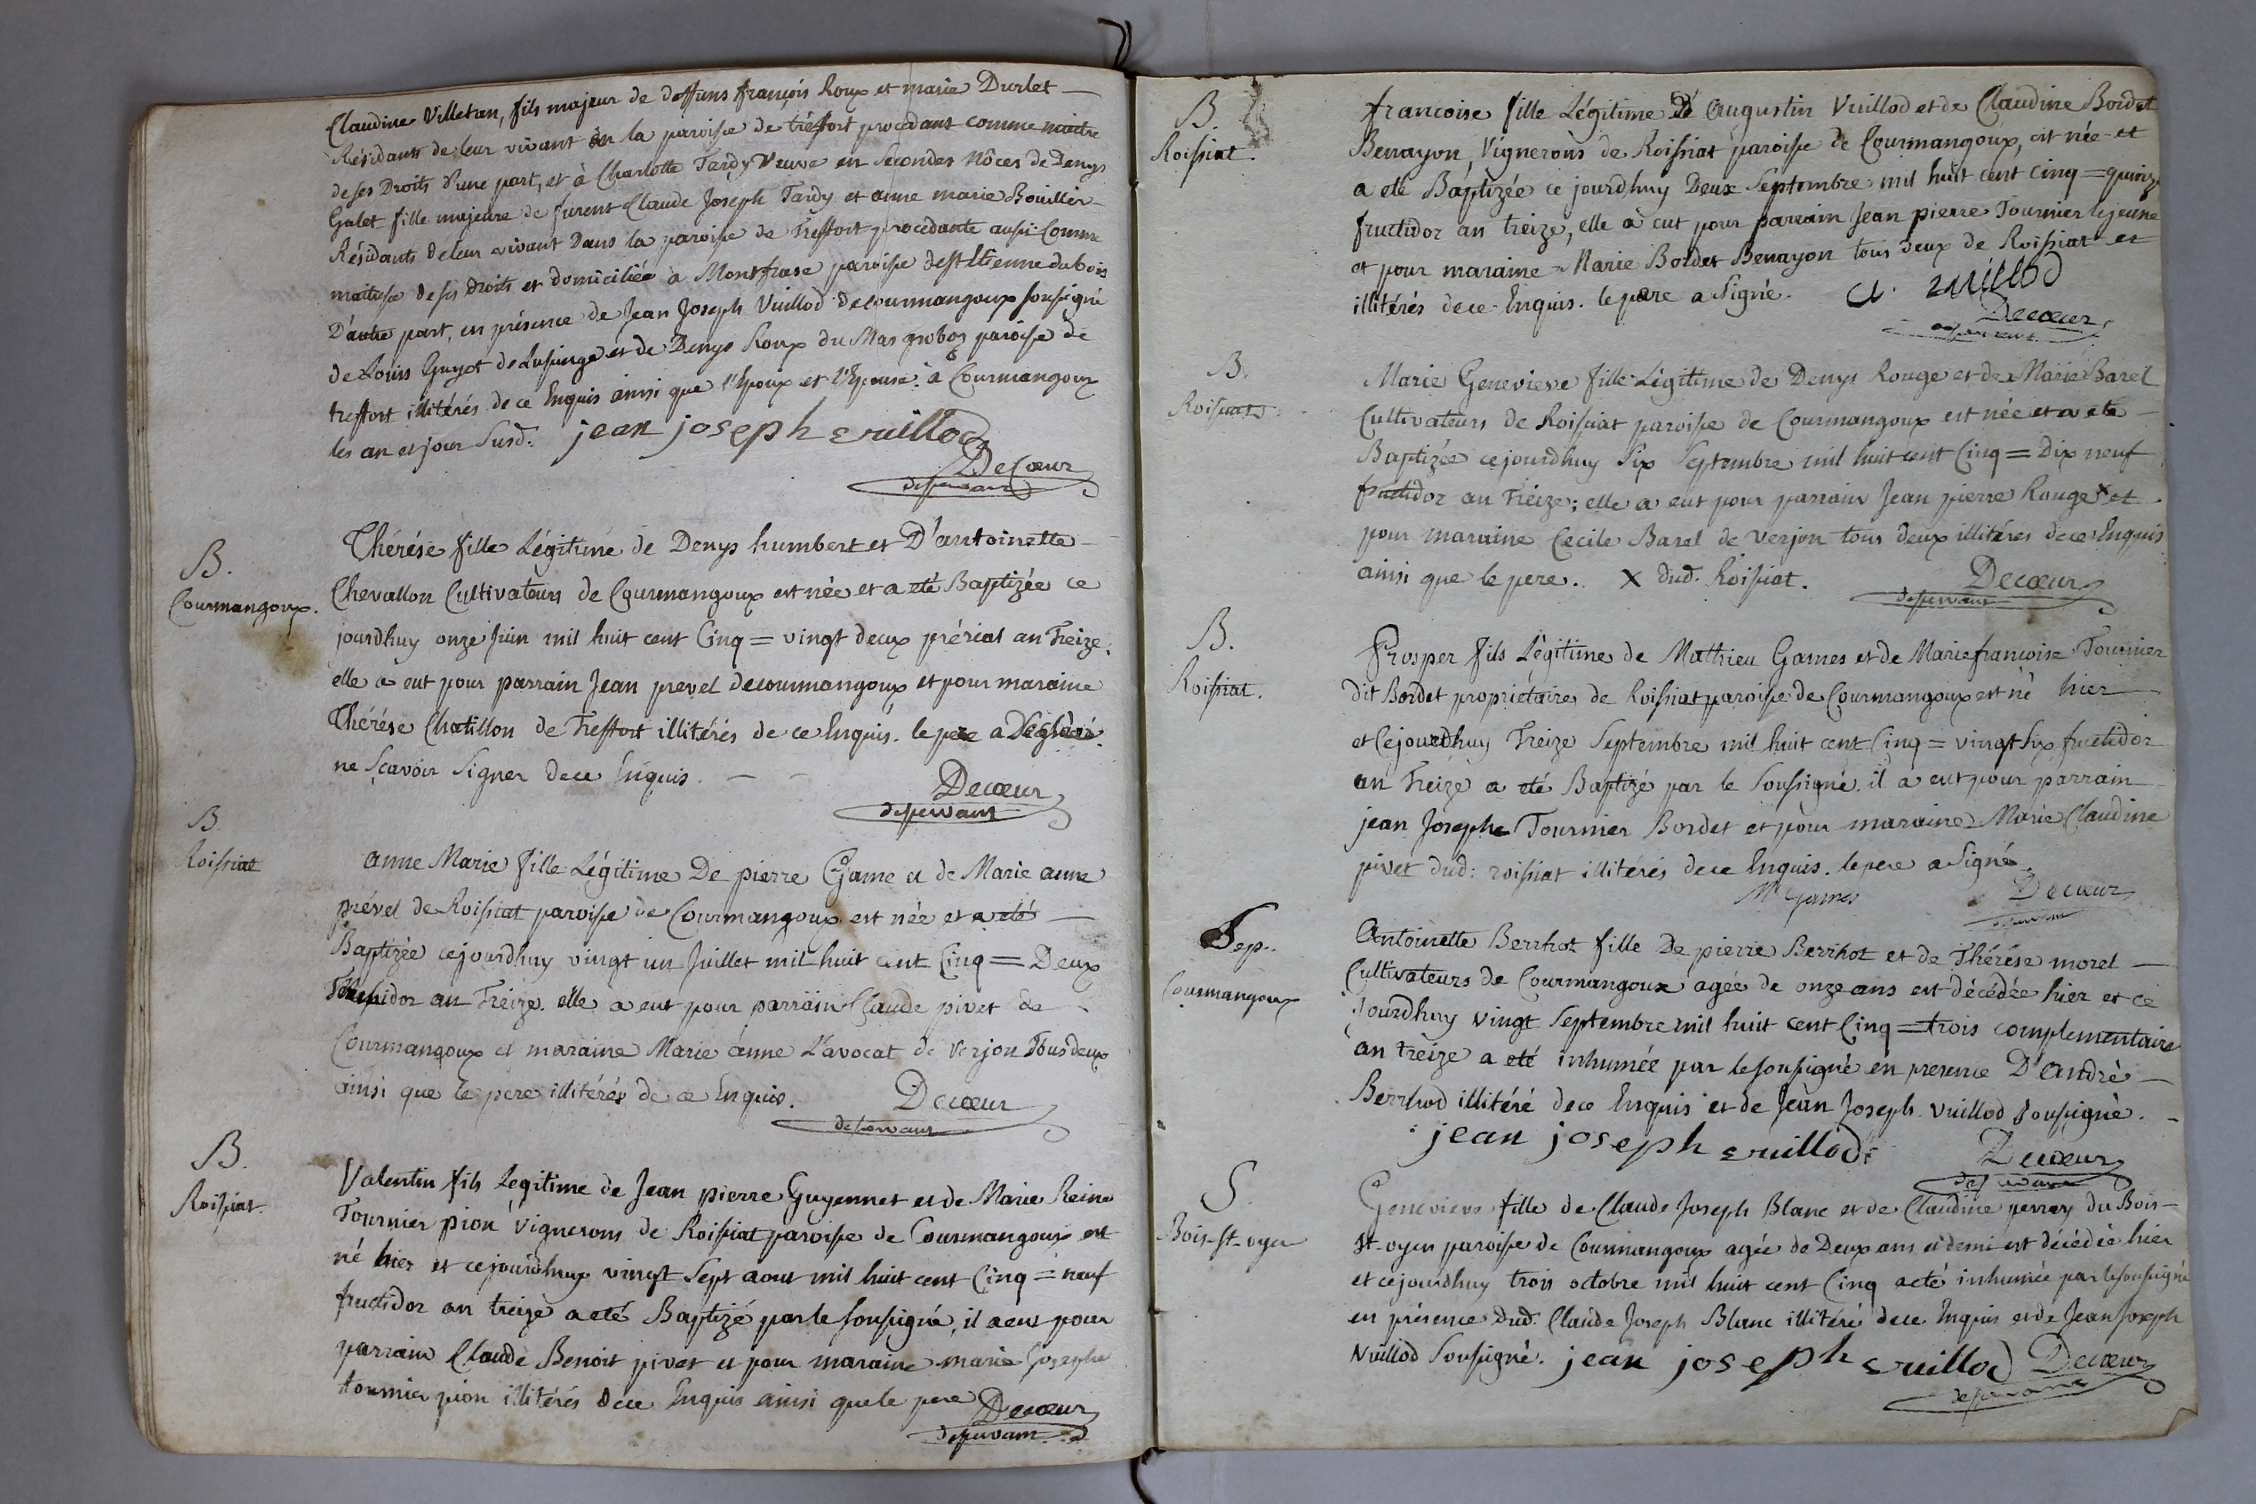 Claudine Villetan, fils majeur de deffuns françois Roux et marie Durlet
Résidants de leur vivant en la paroisse de tréffort procedant comme maitre
de ses Droits d'une part, et à Charlotte Tardy Veuve en secondes Nôces de Denys
Galet fille majeure de furent Claude Joseph Tardy et anne marie Bouillier
Résidants de leur vivant Dans la paroisse de Treffort procedante aussi Comme
maitresse de ses Droits et domiciliée à Montfrase paroisse de st Etienne du bois
D'autre part, en présence de Jean Joseph Vuillod de courmangoux soussigné
de Louis Guyot de Lupinge et de Denys Roux du Mas groboz paroisse de
treffort illitérés de ce Enquis ainsi que l'Epoux et l'Epouse. à Courmangoux
les an et jour Susd. jean joseph vuillod
Decœur
desservant
B.
Courmangoux.
Thérése fille Légitime de Denys humbert et D'antoinette
Chevallon Cultivateurs de Courmangoux est née et a eté Baptizée ce
jourdhuy onze Juin mil huit cent Cinq = vingt deux prérial an Treize.
elle a eut pour parrain Jean prevel de courmangoux et pour maraine
Thérése Chatillon de Treffort illitérés de ce Enquis. le pere a Déclaré
ne Sçavoir Signer de ce Enquis.
Decœur
desservant
B.
Roissiat
anne Marie fille Légitime De pierre Game et de Marie anne
prével de Roissiat paroisse de Courmangoux est née et a eté
Baptizée cejourdhuy vingt un Juillet mil huit cent Cinq = Deux
Thermidor an Treize. elle a eut pour parrain Claude pivet de
Courmangoux et maraine Marie anne L'avocat de Verjon Tous deux
ainsi que le pere illitérés de ce Enquis.
Decœur
desservant
B.
Roissiat.
Valentin fils Legitime de Jean pierre Guyennet et de Marie Reine
Tournier pion Vignerons de Roissiat paroisse de Courmangoux est
né hier et cejourdhuy vingt Sept aout mil huit cent Cinq = neuf
fructidor an treize a eté Baptizé par le soussigné, il a eu pour
parrain Claude Benoit pivet et pour maraine marie Josephe
tournier pion illitérés de ce Enquis ainsi que le pere
Decœur
desservant
B.
Roissiat.
francoise fille Légitime de augustin Vuillod et de Claudine Bordet
Benayon, Vignerons de Roissiat paroisse de Courmangoux, est née et
a eté Baptizée ce jourdhuy Deux Septembre mil huit cent cinq = quinze
fructidor an treize, elle a eut pour parrain Jean pierre Tournier le jeune
et pour maraine Marie Bordet Benayon tous deux de Roissiat et
illitérés de ce Enquis. le pere a Signé. a. vuillod
Decœur
desservant
B.
Roissiat.
Marie Genevieve fille Légitime de Denys Rouge et de Marie Barel
Cultivateurs de Roissiat paroisse de Courmangoux est née et a eté
Baptizée cejourdhuy Six Septembre mil huit cent Cinq = Dix neuf
fructidor an Treize; elle a eut pour parrain Jean pierre Rouge x et
pour maraine Cécile Barel de Verjon tous deux illitérés de ce Enquis
ainsi que le pere. X dud. Roissiat.
Decœur
desservant
B.
Roissiat.
Prosper fils Légitime de Mathieu Games et de Marie françoise Tournier
dit Bordet propriétaires de Roissiat paroisse de Courmangoux est né hier
et Cejourdhuy Treize Septembre mil huit cent Cinq = vingt Six fructidor
an Treize a eté Baptizé par le Soussigné. il a eut pour parrain
jean Josephe Tournier Bordet et pour maraine Marie Claudine
pivet dud: roissiat illitérés de ce Enquis. le pere a Signé.
M games
Decœur
desservant
Sep.
Courmangoux
Antoinette Berrhot fille De pierre Berrhot et de Thérése morel
Cultivateurs de Courmangoux agée de onze ans est décédée hier et ce
jourdhuy vingt Septembre mil huit cent Cinq = trois complementaire
an treize a eté inhumée par le soussigné en presence D'andrè
Berrhod illitéré de ce Enquis et de Jean Joseph Vuillod Soussigné.
jean joseph vuillod
Decœur
desservant
S.
Bois-st-oyen
Genevieve fille de Claude Joseph Blanc et de Claudine perray du Bois-
st-oyen paroisse de Courmangoux agée de Deux ans et demi est décédée hier
et cejourdhuy trois octobre mil huit cent Cinq a eté inhumée par le soussigné
en présence dud. Claude Joseph Blanc illitéré de ce Enquis et de Jean Joseph
Vuillod Soussigné. jean joseph vuillod Decœur
desservant